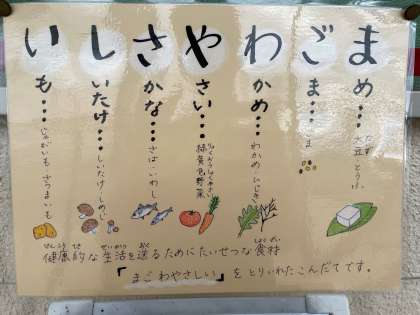 まめ…豆・とうふ
ごま…ごま
わかめ…わかめ・ひじき
やさい…緑黄色野菜
さかな…さば・いわし
しいたけ…しいたけ・しめじ
いも…じゃがいも さつまいも
健康的な生活を送るためにたいせつな食材
「まごわやさしい」をとりいれたこんだてです。